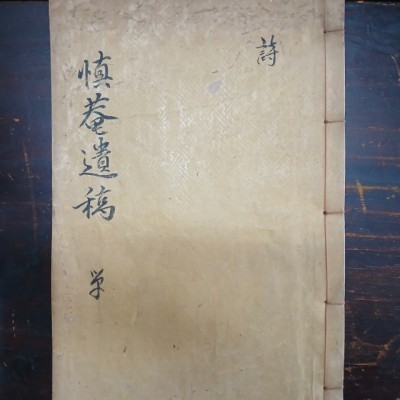 詩
慎菴遺稿 單